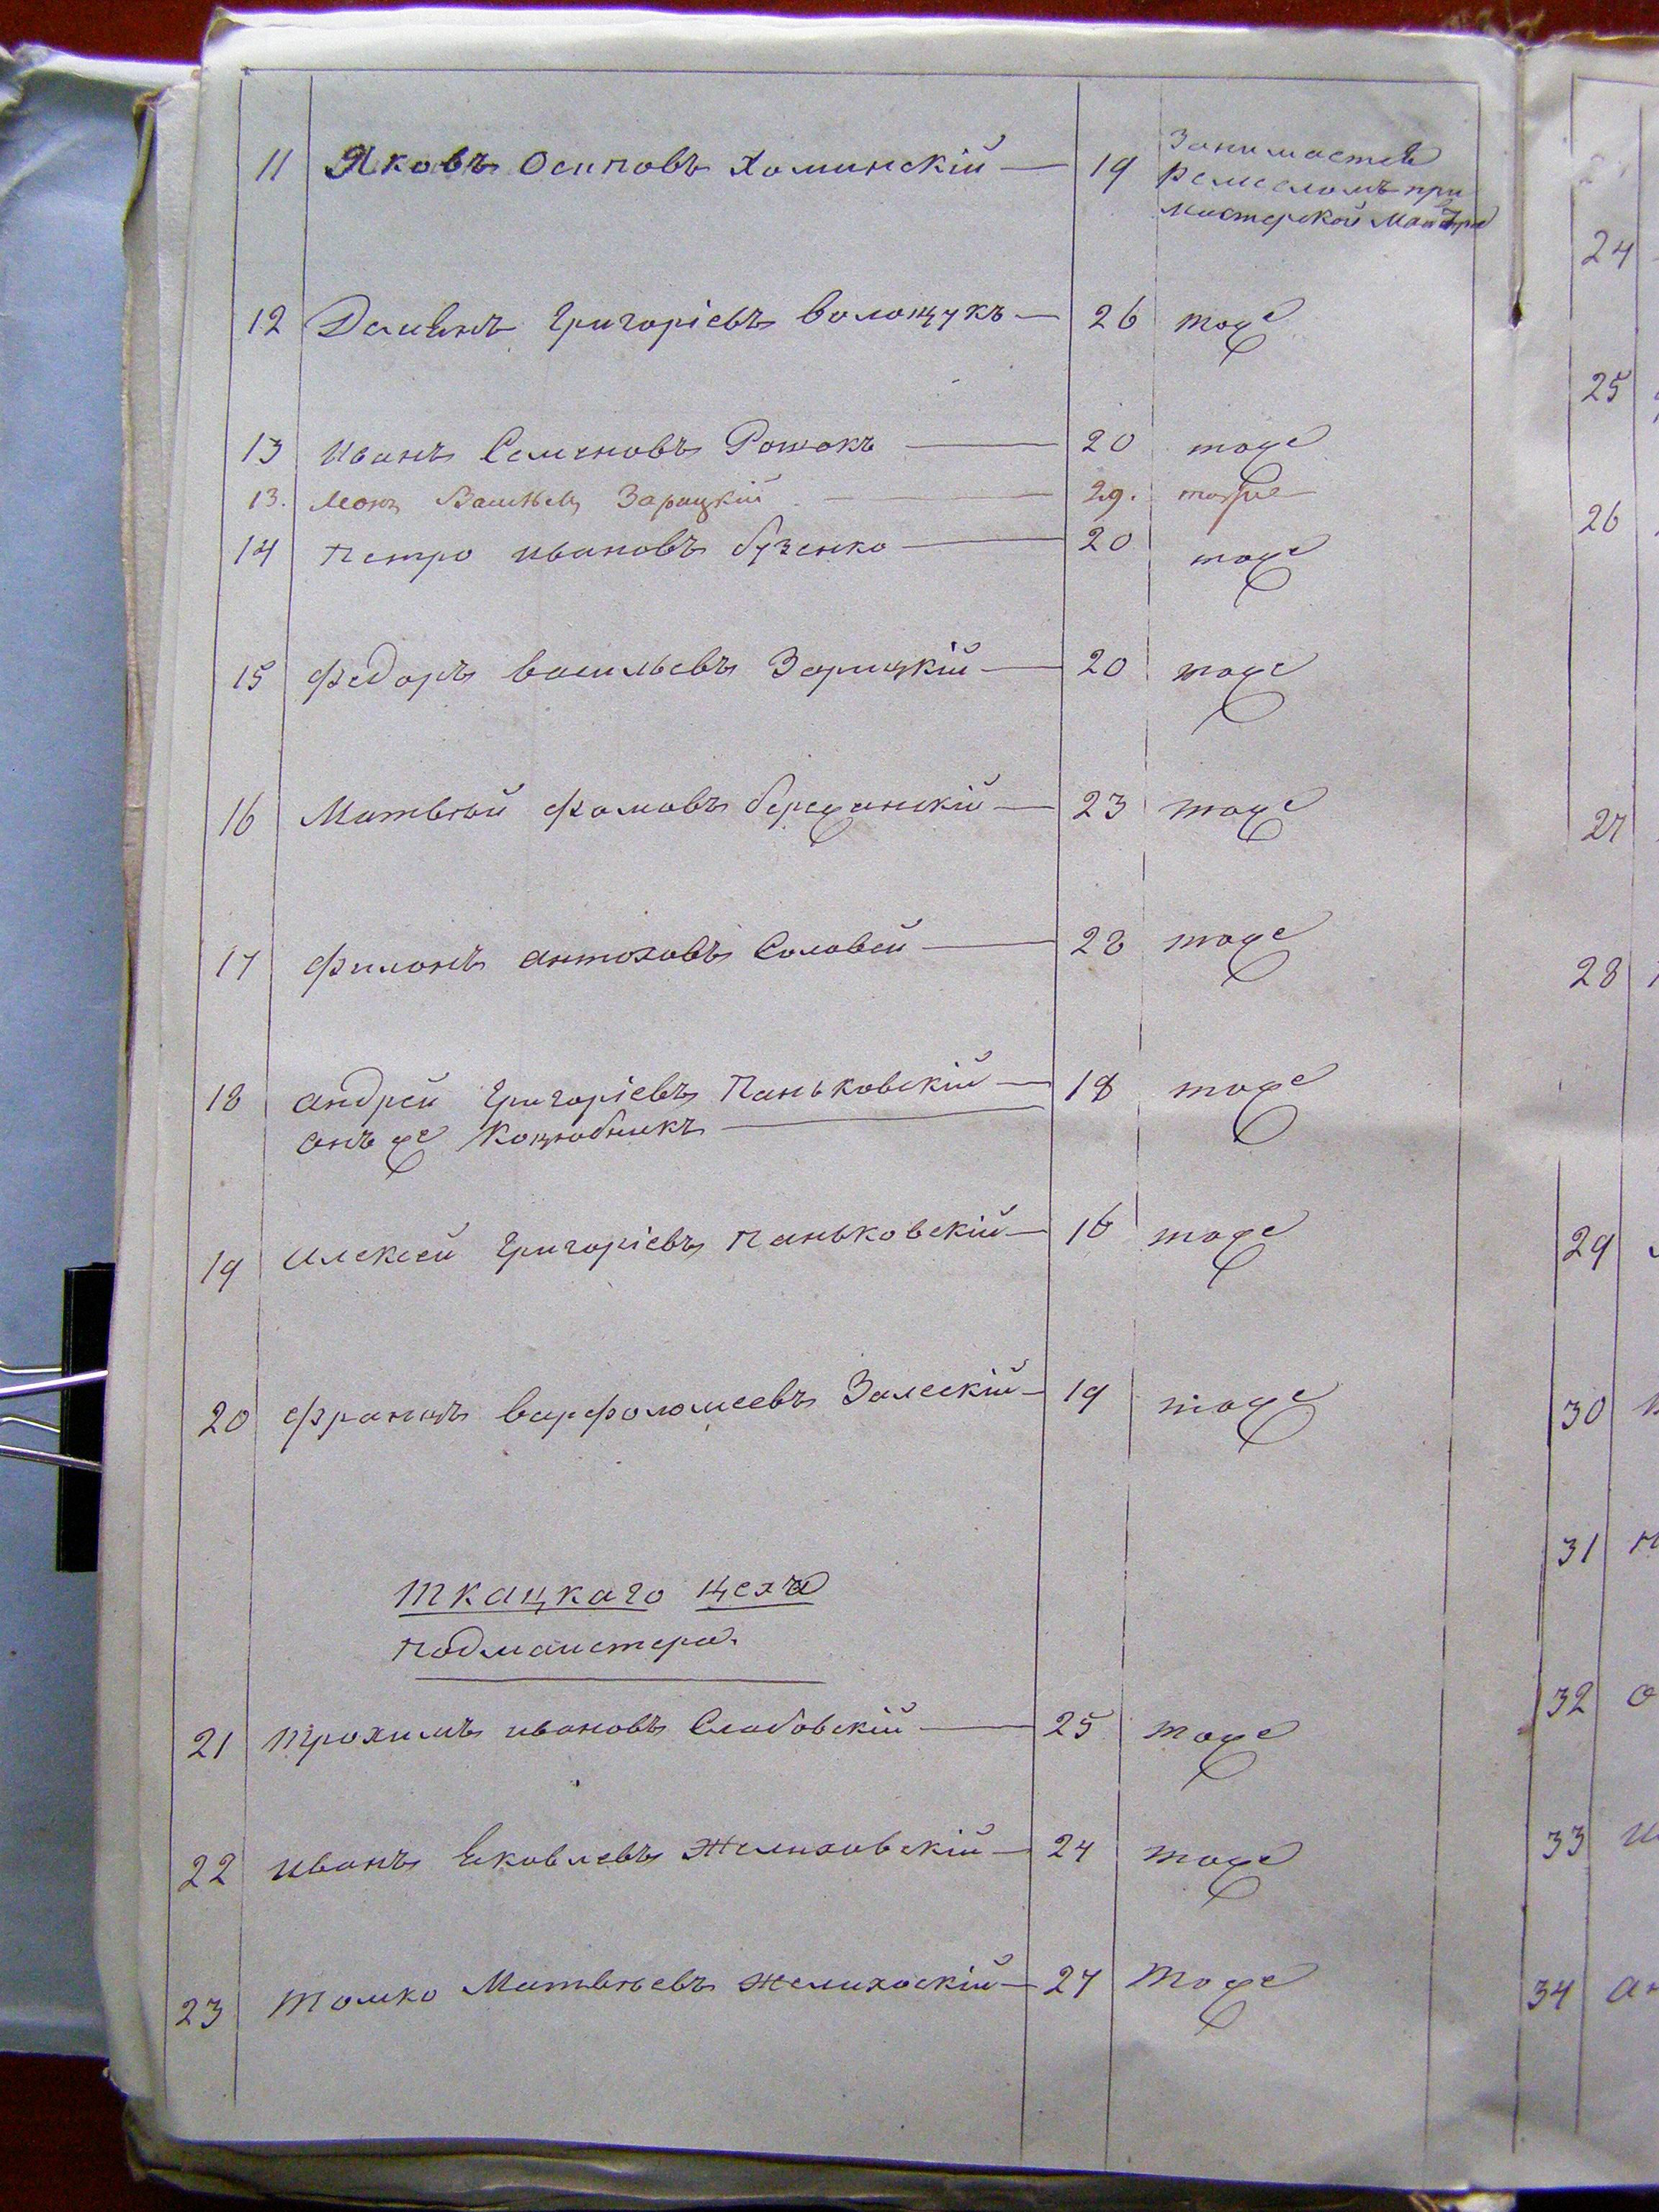 11 Яковъ Осиповъ Хоминскій — 19 Занимается
Ремесломъ при
мастерской
12 Григоріевъ Волощукъ — 26 тоже
13 Иванъ Семеновъ Рожокъ — 20 тоже
13. Леонъ Зарицкій — 29. тоже
14 Петро Ивановъ Бузенко — 20 тоже
15 Федоръ Васильевъ Зарицкій — 20 тоже
16 Матвѣй Фомовъ Бережанскій — 23 тоже
17 Филонъ Антоховъ Соловей — 28 тоже
18 Андрей Григоріевъ Паньковскій — 18 тоже
онъ же Коцюбникъ —
19 Алексей Григоріевъ Паньковскій — 16 тоже
20 Францъ Варфоломеевъ Залескій — 19 тоже
Ткацкаго цеха
Подмайстера.
21 Трохимъ Ивановъ Слабовскій — 25 тоже
22 Иванъ Яковлевъ Желиховскій — 24 тоже
23 Томко Матвѣевъ Желихоскій — 27 тоже
24
25
26
27
28
29
30
31
32
33
34